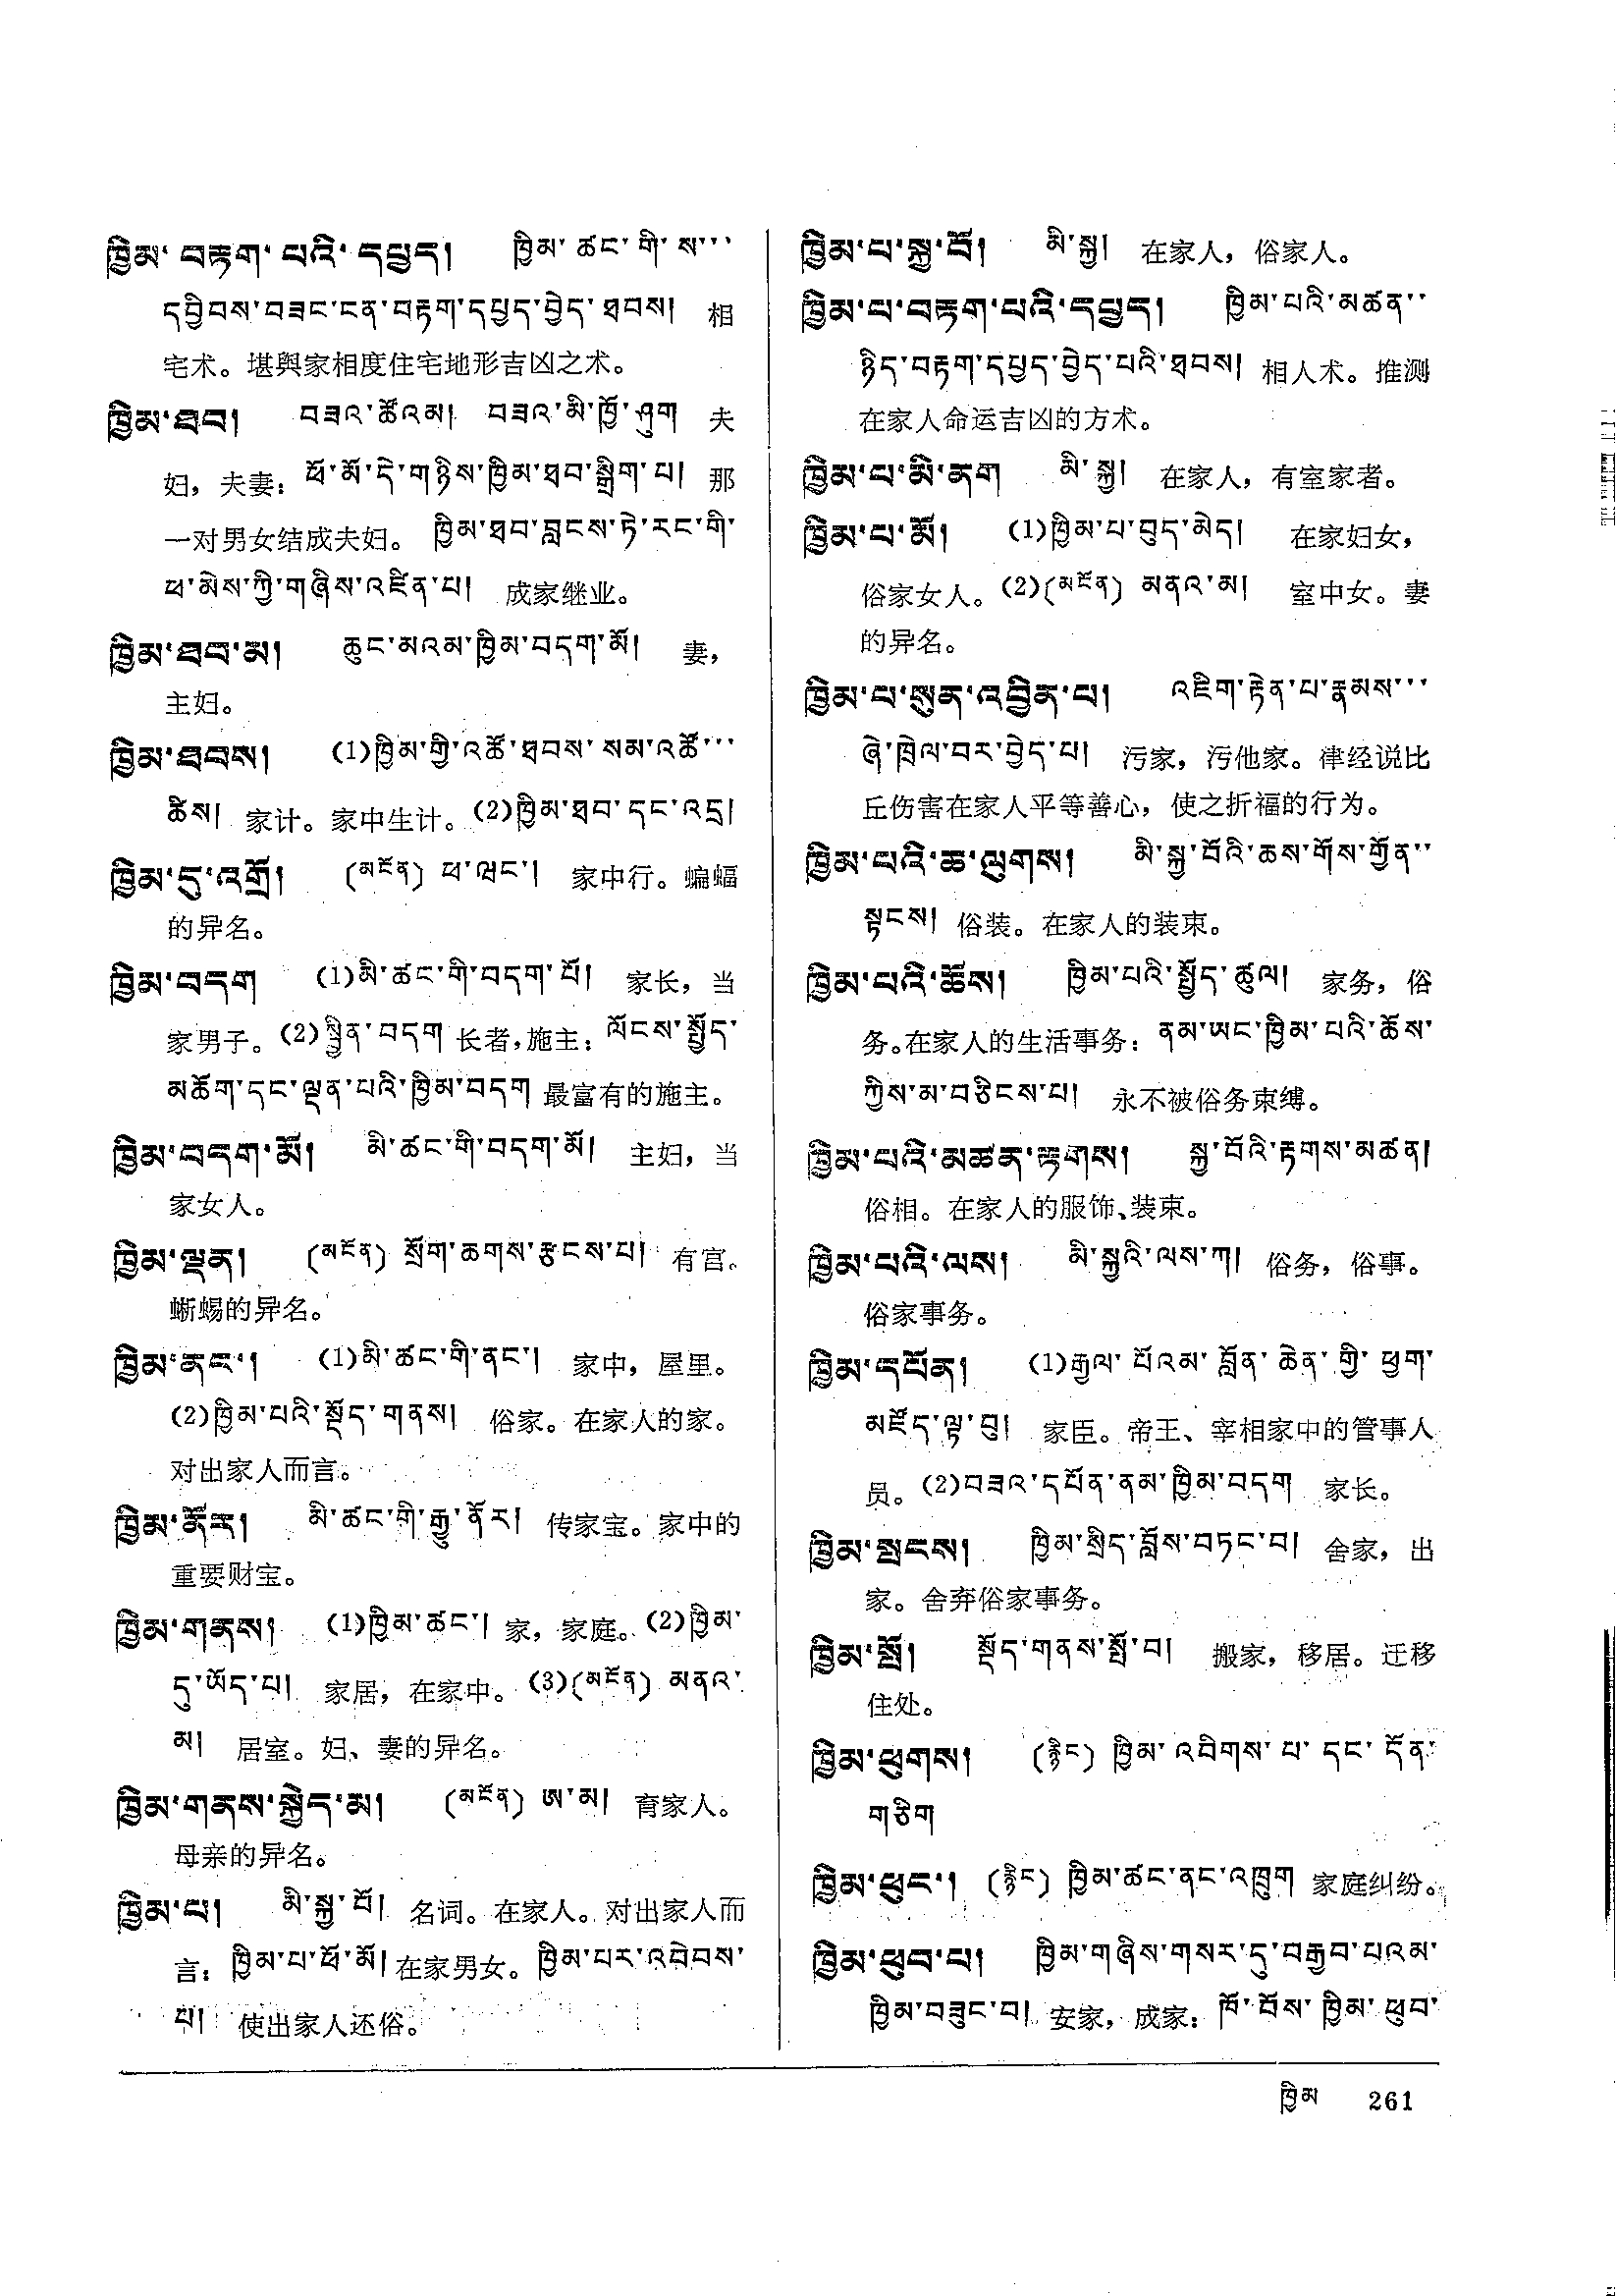 ཁྱིམ་བརྟག་པའི་དཔྱད། ཁྱིམ་ཚང་གི་ས་་་
དབྱིབས་བཟང་ངན་བརྟག་དཔྱད་བྱེད་ཐབས། 相
宅术。堪舆家相度住宅地形吉凶之术。
ཁྱིམ་ཐབ། བཟའ་ཚོའམ། བཟའ་མི་ཁྱོ་ཤུག 夫
妇，夫妻：ཕོ་མོ་དེ་གཉིས་ཁྱིམ་ཐབ་སྒྲིག་པ། 那
一对男女结成夫妇。ཁྱིམ་ཐབ་བླངས་ཏེ་རང་གི་
ཕ་མེས་ཀྱི་གཞིས་འཛིན་པ། 成家继业。
ཁྱིམ་ཐབ་མ། ཆུང་མའམ་ཁྱིམ་བདག་མོ། 妻，
主妇。
ཁྱིམ་ཐབས། (1)ཁྱིམ་གྱི་འཚོ་ཐབས་སམ་འཚོ་་་
ཚིས། 家计。家中生计。(2)ཁྱིམ་ཐབ་དང་འདྲ།
ཁྱིམ་དུ་འགྲོ། (མངོན) ཕ་ཝང་། 家中行。蝙蝠
的异名。
ཁྱིམ་བདག (1)མི་ཚང་གི་བདག་པོ། 家长，当
家男子。(2)སྦྱིན་བདག 长者，施主：ལོངས་སྤྱོད་
མཆོག་དང་ལྡན་པའི་ཁྱིམ་བདག 最富有的施主。
ཁྱིམ་བདག་མོ། མི་ཚང་གི་བདག་མོ། 主妇，当
家女人。
ཁྱིམ་ལྡན། (མངོན) སྲོག་ཆགས་རྩངས་པ། 有宫。
蜥蜴的异名。
ཁྱིམ་ནང་། (1)མི་ཚང་གི་ནང་། 家中，屋里。
(2)ཁྱིམ་པའི་སྡོད་གནས། 俗家。在家人的家。
对出家人而言。
ཁྱིམ་ནོར། མི་ཚང་གི་རྒྱུ་ནོར། 传家宝。家中的
重要财宝。
ཁྱིམ་གནས། (1)ཁྱིམ་ཚང་། 家，家庭。(2)ཁྱིམ་
དུ་ཡོད་པ། 家居，在家中。(3)(མངོན) མནའ་
མ། 居室。妇、妻的异名。
ཁྱིམ་གནས་སྐྱེད་མ། (མངོན) ཨ་མ། 育家人。
母亲的异名。
ཁྱིམ་པ། མི་སྐྱ་བོ། 名词。在家人。对出家人而
言：ཁྱིམ་པ་ཕོ་མོ། 在家男女。ཁྱིམ་པར་འབེབས་
པ། 使出家人还俗。
ཁྱིམ་པ་སྐྱ་བོ། མི་སྐྱ། 在家人，俗家人。
ཁྱིམ་པ་བརྟག་པའི་དཔྱད། ཁྱིམ་པའི་མཚན་་
ཉིད་བརྟག་དཔྱད་བྱེད་པའི་ཐབས། 相人术。推测
在家人命运吉凶的方术。
ཁྱིམ་པ་མི་ནག མི་སྐྱ། 在家人，有室家者。
ཁྱིམ་པ་མོ། (1)ཁྱིམ་པ་བུད་མེད། 在家妇女，
俗家女人。(2)(མངོན) མནའ་མ། 室中女。妻
的异名。
ཁྱིམ་པ་སུན་འབྱིན་པ། འཇིག་རྟེན་པ་རྣམས་་་
ཞེ་ཁྲེལ་བར་བྱེད་པ། 污家，污他家。律经说比
丘伤害在家人平等善心，使之折福的行为。
ཁྱིམ་པའི་ཆ་ལུགས། མི་སྐྱ་བོའི་ཆས་གོས་གྱོན་་
སྟངས། 俗装。在家人的装束。
ཁྱིམ་པའི་ཆོས། ཁྱིམ་པའི་སྤྱོད་ཚུལ། 家务，俗
务。在家人的生活事务：ནམ་ཡང་ཁྱིམ་པའི་ཆོས་
ཀྱིས་མ་བཅིངས་པ། 永不被俗务束缚。
ཁྱིམ་པའི་མཚན་རྟགས། སྐྱ་བོའི་རྟགས་མཚན།
俗相。在家人的服饰、装束。
ཁྱིམ་པའི་ལས། མི་སྐྱའི་ལས་ཀ། 俗务，俗事。
俗家事务。
ཁྱིམ་དཔོན། (1)རྒྱལ་པོའམ་བློན་ཆེན་གྱི་ཕྱག་
མཛོད་ལྟ་བུ། 家臣。帝王、宰相家中的管事人
员。(2)བཟའ་དཔོན་ནམ་ཁྱིམ་བདག 家长。
ཁྱིམ་སྤངས། ཁྱིམ་སྲིད་བློས་བཏང་བ། 舍家，出
家。舍弃俗家事务。
ཁྱིམ་སྤོ། སྡོད་གནས་སྤོ་བ། 搬家，移居。迁移
住处。
ཁྱིམ་ཕུགས། (རྙིང) ཁྱིམ་འབིགས་པ་དང་དོན་
གཅིག
ཁྱིམ་ཕུང་། (རྙིང) ཁྱིམ་ཚང་ནང་འཁྲུག 家庭纠纷。
ཁྱིམ་ཕུབ་པ། ཁྱིམ་གཞིས་གསར་དུ་བརྒྱབ་པའམ་
ཁྱིམ་བཟུང་བ། 安家，成家：ཁོ་བོས་ཁྱིམ་ཕུབ་
ཁྱིམ 261